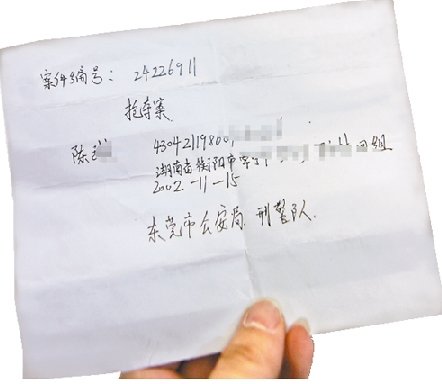 案件编号：24226911
抢夺案
陈 43042119800
湖南省衡阳市 组
2002.-11-15
东莞市公安局 刑警队.